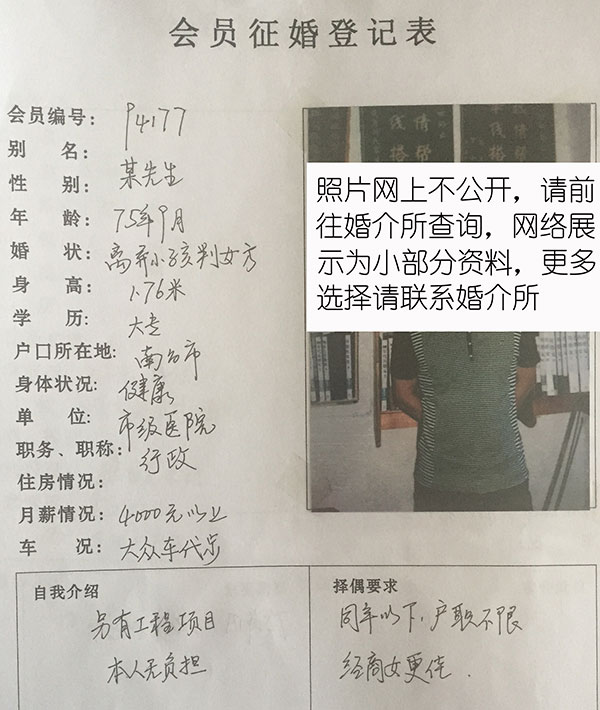 会员征婚登记表
会员编号: 94177
别 名: 某先生
性 别:
年 龄: 75年9月
婚 状: 离异小孩判女方
身 高: 1.76米
学 历: 大专
户口所在地: 南昌市
身体状况: 健康
单 位: 市级医院
职务、职称: 行政
住房情况:
月薪情况: 4000元以上
车 况: 大众车代步
照片网上不公开，请前
往婚介所查询，网络展
示为小部分资料，更多
选择请联系婚介所
自我介绍
另有工程项目
本人无负担
择偶要求
同年以下，户职不限
经商女更佳.